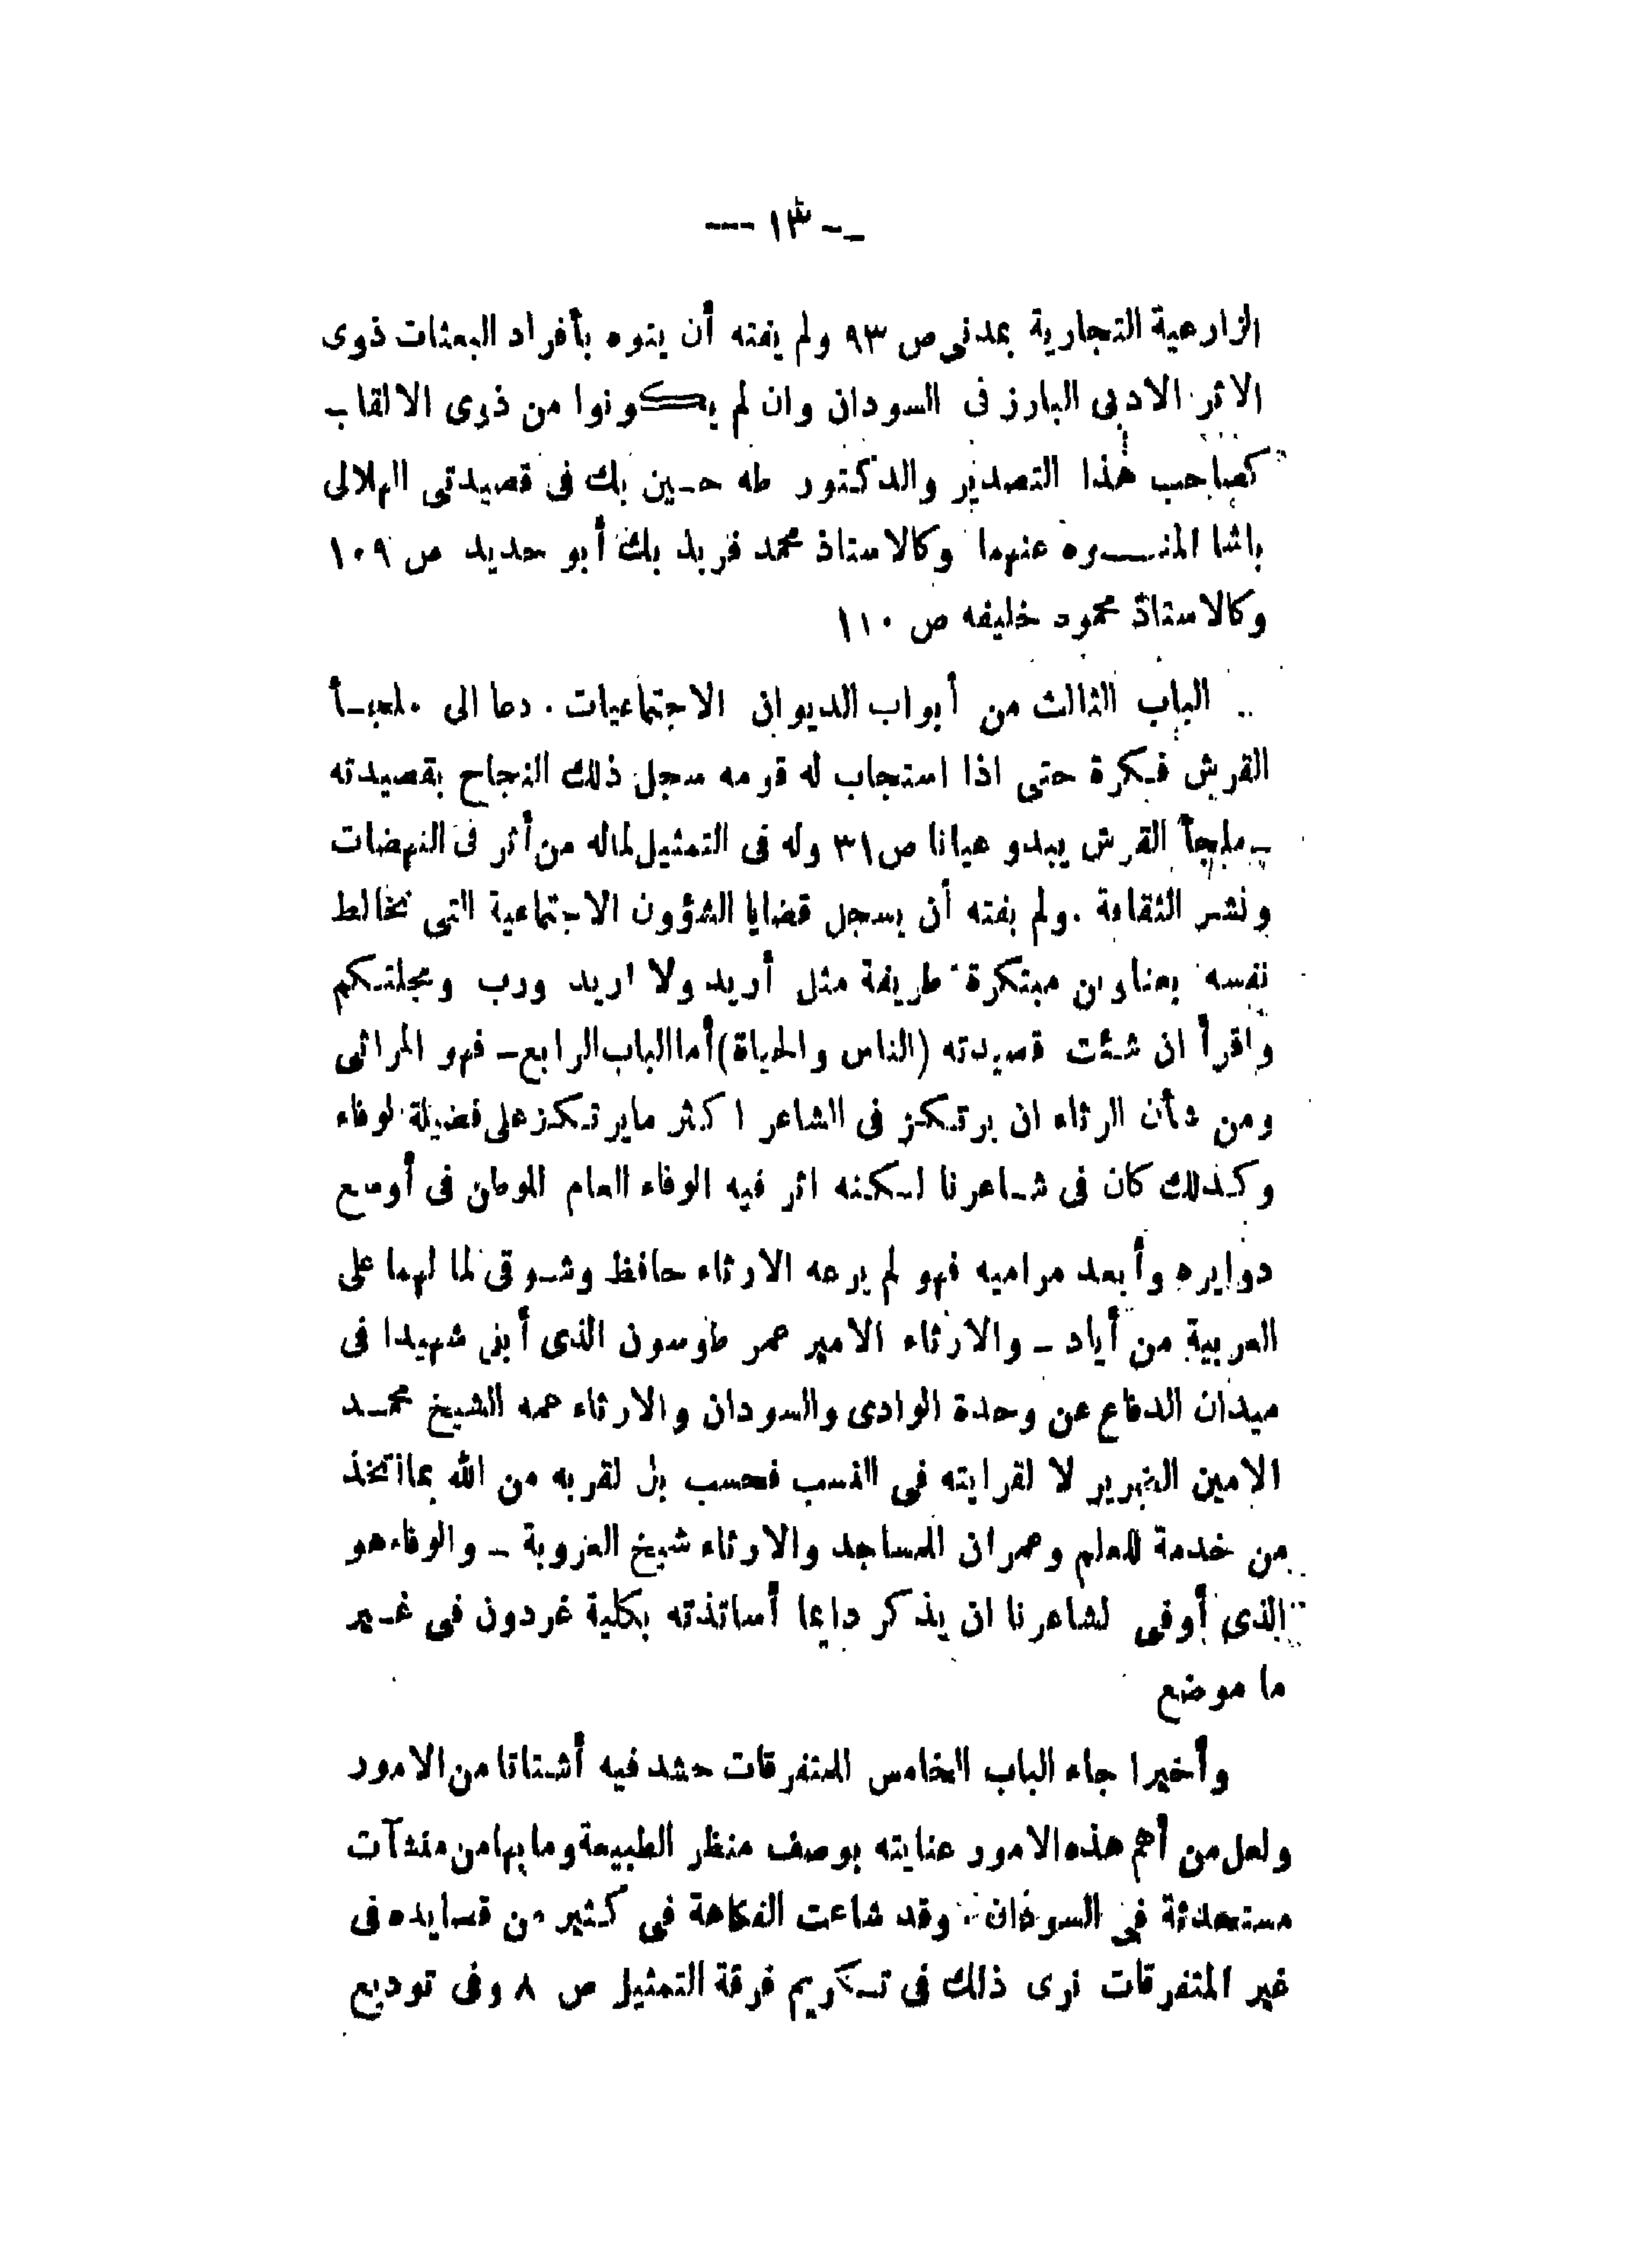 -- ١٣ --
الزارعية التجارية بمدنى ص ٩٣ ولم يفته أن ينوه بأفراد البعثات ذوى
الاثر الادبى البارز فى السودان وان لم يكونوا من ذوى الالقاب
كصاحب هذا التصدير والدكتور طه حسين بك فى قصيدتى الهلالى
باشا المنوه عنهما وكالاستاذ محمد فريد بك أبو حديد ص ١٠٩
وكالاستاذ محمود خليفه ص ١١٠
الباب الثالث من أبواب الديوان الاجتماعيات . دعا الى ملجأ
القرش فكرة حتى اذا استجاب له قومه سجل ذلك النجاح بقصيدته
ملجأ القرش يبدو عيانا ص ٣١ وله فى التمثيل لماله من أثر فى النهضات
ونشر الثقافة . ولم يفته أن يسجل قضايا الشؤون الاجتماعية التى تخالط
نفسه بعناوين مبتكرة طريفة مثل أريد ولا اريد ورب ومجلتكم
واقرأ ان شئت قصيدته (الناس والحياة) أما الباب الرابع - فهو المراثى
ومن شأن الرثاء ان يرتكز فى الشاعر اكثر مايرتكز على فضيلة لوفاء
وكذلك كان فى شاعرنا لكنه اثر فيه الوفاء العام الموطن فى أوسع
دوايره وأبعد مراميه فهو لم يرعه الارثاء حافظ وشوقى لما لهما على
العربية من أياد - والارثاء الامير عمر طوسون الذى أبنى شهيدا فى
ميدان الدفاع عن وحدة الوادى والسودان والارثاء عمه الشيخ محمد
الامين الضرير لا لقرابته فى النسب فحسب بل لقربه من الله بما اتخذ
من خدمة للعلم وعمران المساجد والارثاء شيخ العروبة - والوفاء هو
الذى أوفى لشاعرنا ان يذكر دايما أساتذته بكلية غردون فى غير
ما موضع
وأخيرا جاء الباب الخامس المتفرقات حشد فيه أشتاتا من الامور
ولعل من أهم هذه الامور عنايته بوصف منظر الطبيعة وما بها من منشآت
مستحدثة فى السودان . وقد شاعت الفكاهة فى كثير من قصايده فى
غير المتفرقات نرى ذلك فى تكريم فرقة التمثيل ص ٨ وفى توديع